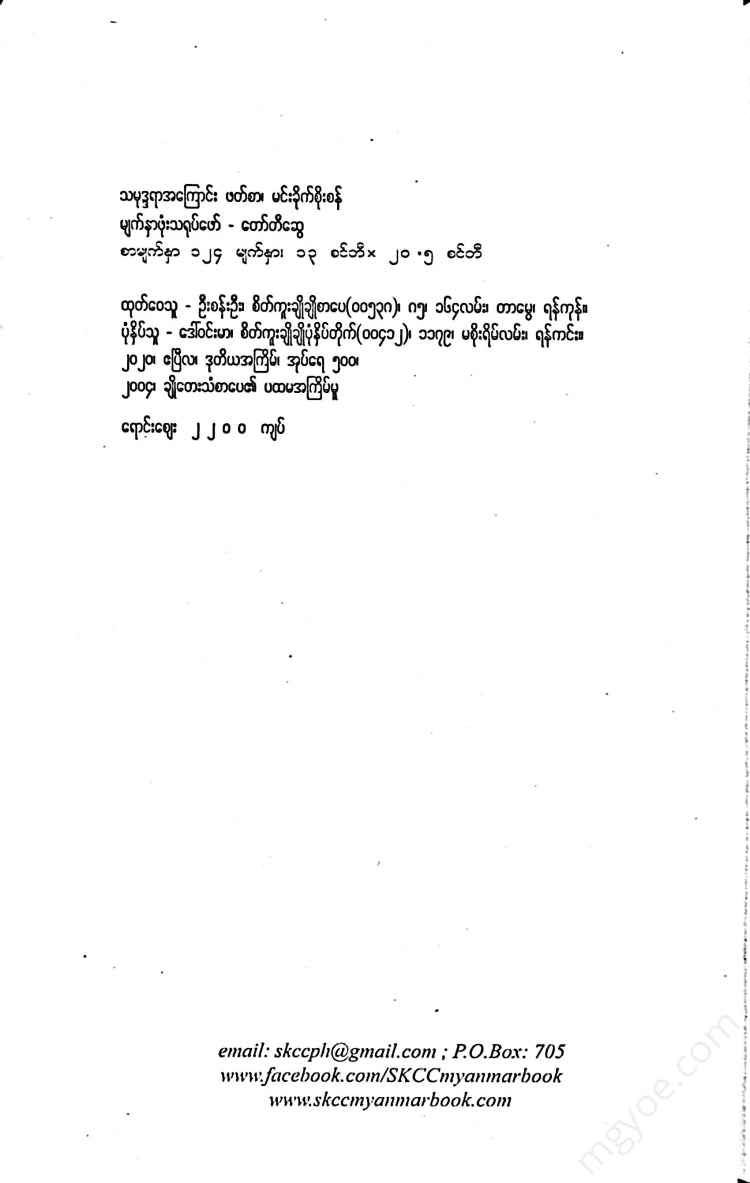 သမုဒ္ဒရာအကြောင်း ဖတ်စာ၊ မင်းခိုက်စိုးစန်
မျက်နှာဖုံးသရုပ်ဖော် - တော်တီဆွေ
စာမျက်နှာ ၁၂၄ မျက်နှာ၊ ၁၃ စင်တီ× ၂၀.၅ စင်တီ
ထုတ်ဝေသူ - ဦးစန်းဦး၊ စိတ်ကူးချိုချိုစာပေ(၀၀၅၃၈)၊ ဂ၅၊ ၁၆၄လမ်း၊ တာမွေ၊ ရန်ကုန်။
ပုံနှိပ်သူ - ဒေါ်ဝင်းမာ၊ စိတ်ကူးချိုချိုပုံနှိပ်တိုက်(၀၀၄၁၂)၊ ၁၁၇၉၊ မစိုးရိမ်လမ်း၊ ရန်ကင်း။
၂၀၂၀၊ ဧပြီလ၊ ဒုတိယအကြိမ်၊ အုပ်ရေ ၅၀၀၊
၂၀၀၄၊ ချိုတေးသံစာပေ၏ ပထမအကြိမ်မူ
ရောင်းဈေး ၂၂၀၀ ကျပ်
email: skccph@gmail.com ; P.O.Box: 705
www.facebook.com/SKCCmyanmarbook
www.skccmyanmarbook.com
mgyoe.com